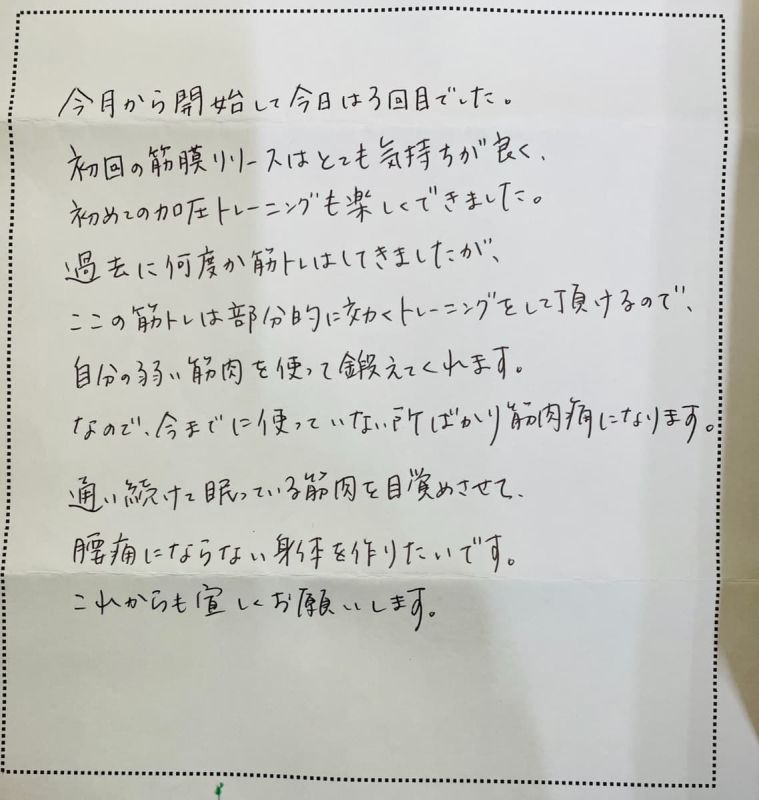 今月から開始して今日は3回目でした。
初回の筋膜リリースはとても気持ちが良く、
初めての加圧トレーニングも楽しくできました。
過去に何度か筋トレはしてきましたが、
ここの筋トレは部分的に効くトレーニングをして頂けるので、
自分の弱い筋肉を使って鍛えてくれます。
なので、今までに使っていない所ばかり筋肉痛になります。
通い続けて眠っている筋肉を目覚めさせて、
腰痛にならない身体を作りたいです。
これからも宜しくお願いします。